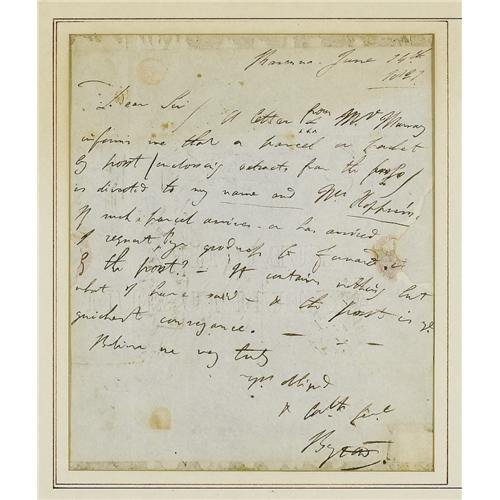 Ravenna. June 14th
1821.
Dear Sir
A letter from Mr Murray
informs me that a parcel or packet
by post / enclosing extracts from the
is directed to my name and Mr Hoppner's.
If such a parcel arrives - or has arrived
I request your goodness to forward it
by the post? - It contains nothing but
what I have said - & the post is ye
quickest conveyance. -
Believe me very truly
yrs obliged
&
Byron.